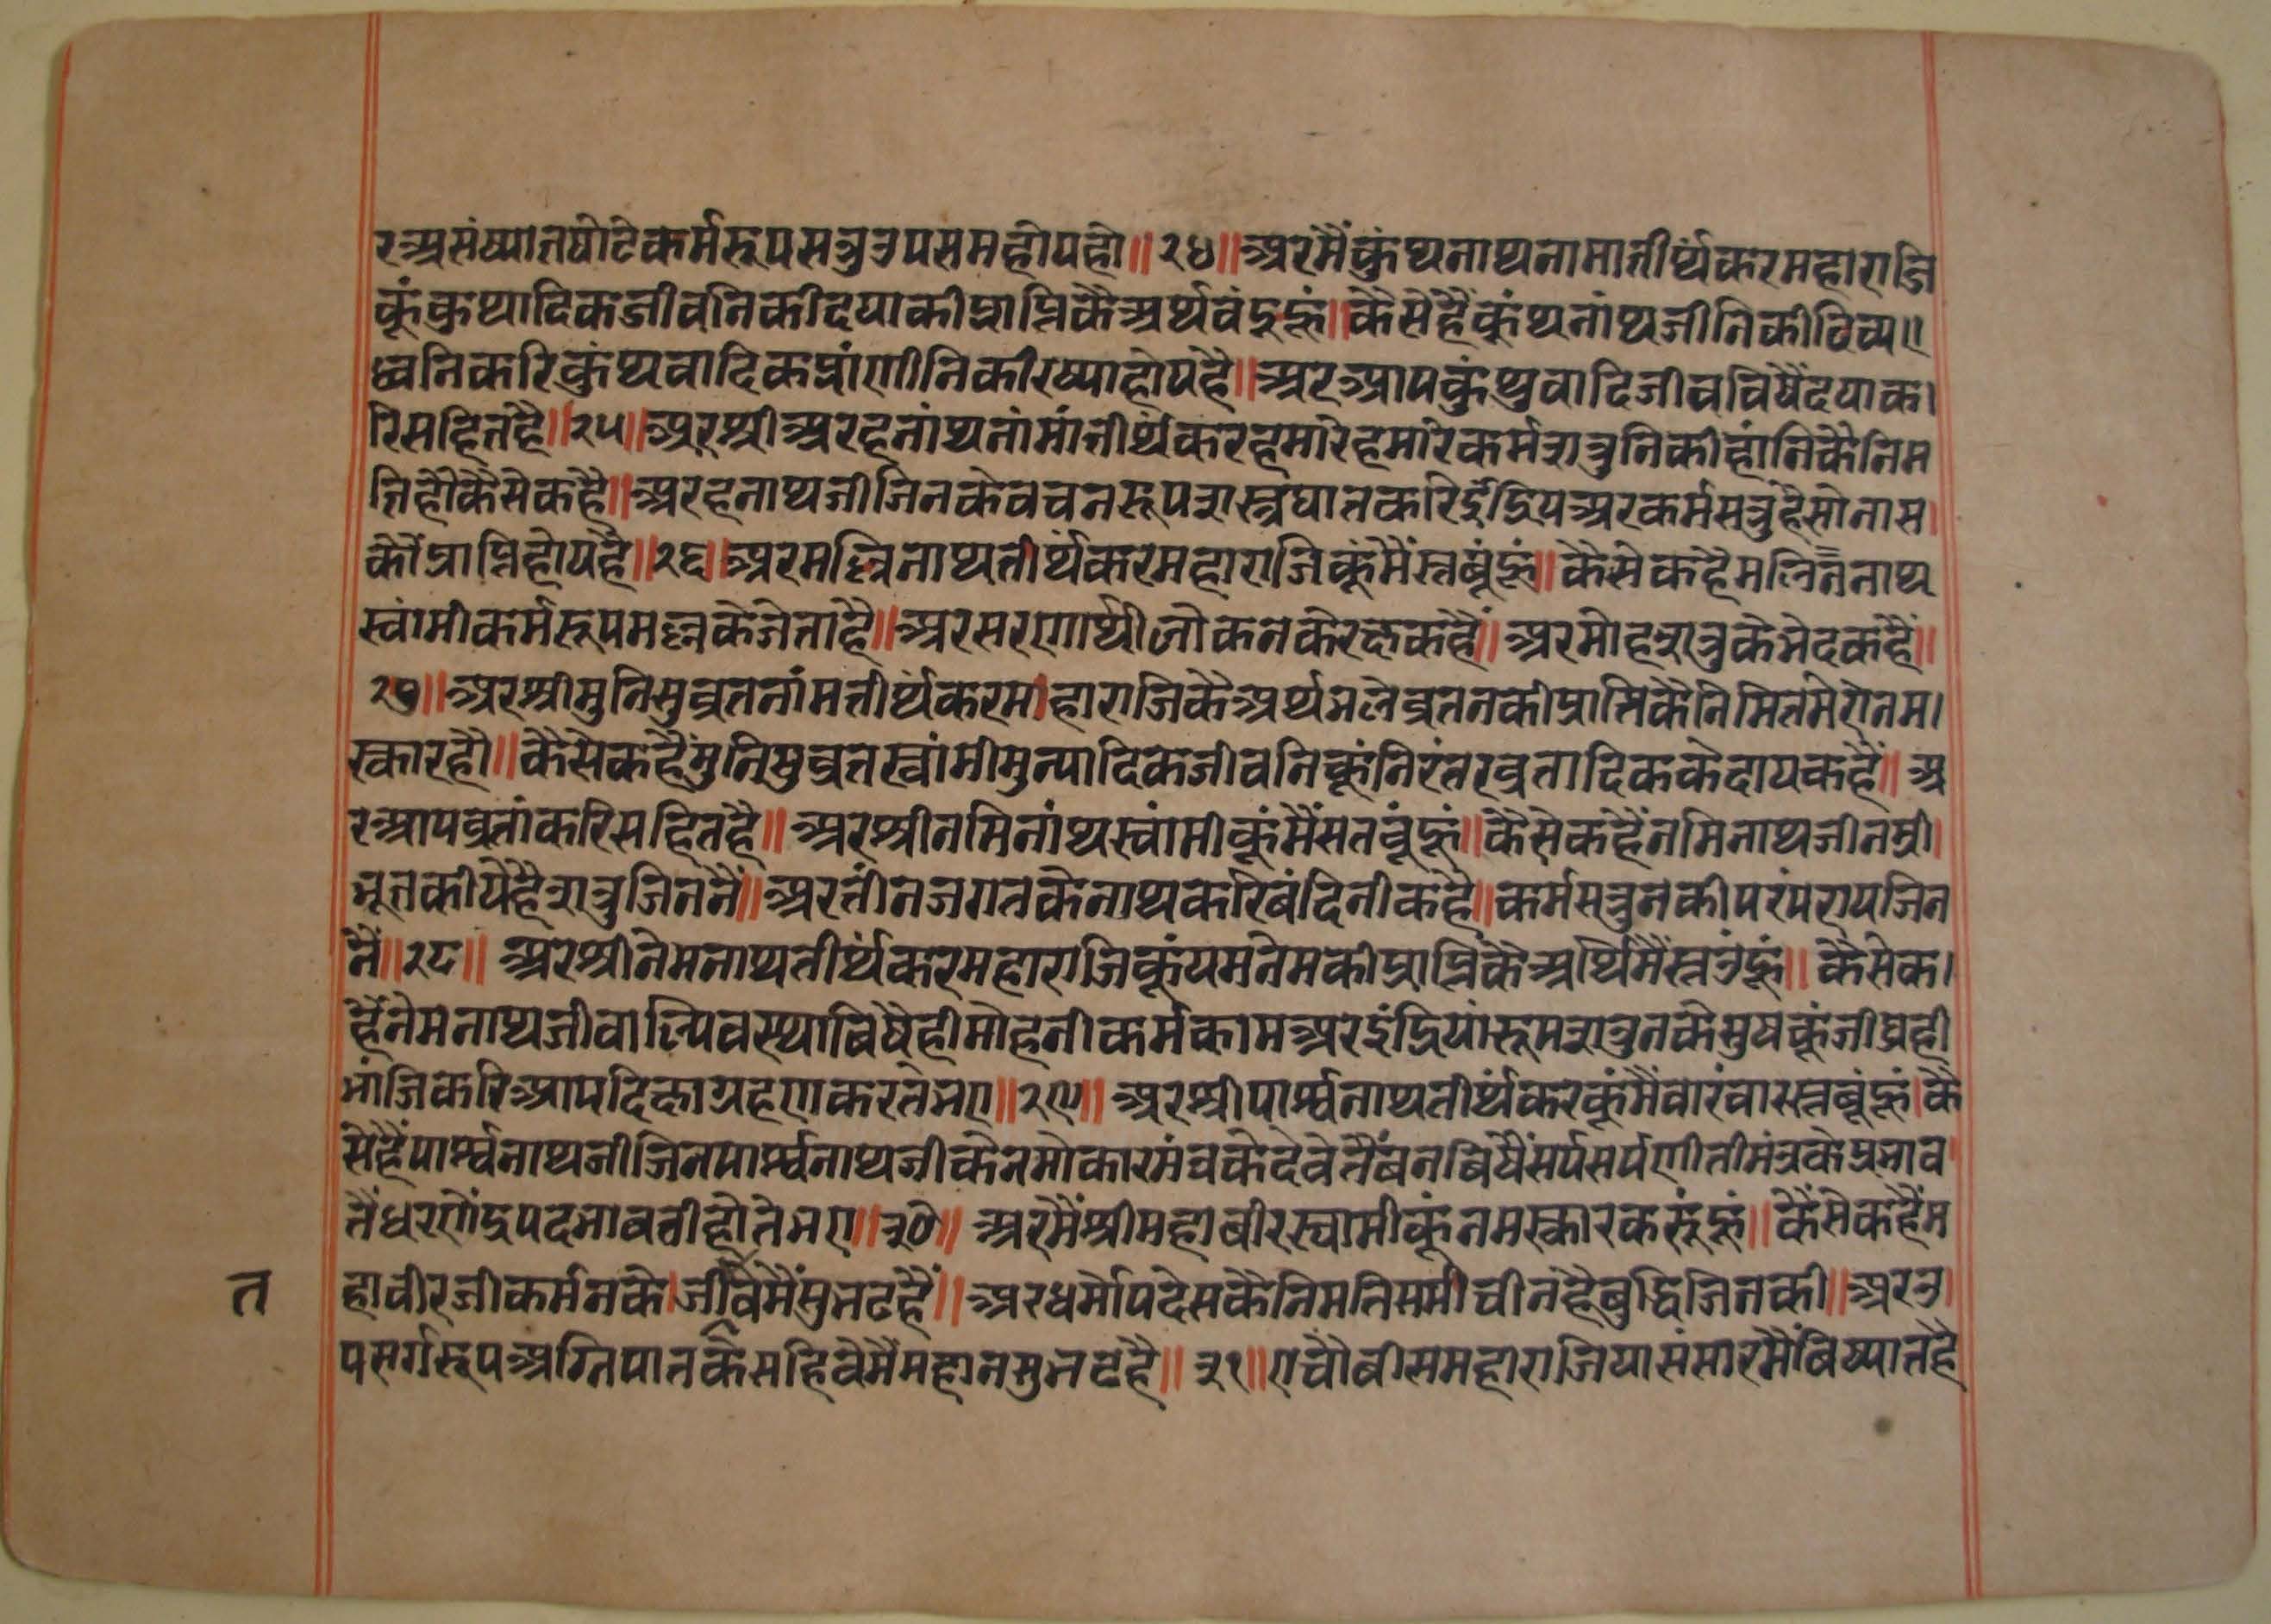 रअसंष्यातषोटेकर्मरूपसत्रुउपसमहोयहो॥२४॥अरमैंकुंथनाथनामातीर्थंकरमहाराजि
कूंकुथादिकजीवनिकीदयाकीप्राप्तिकैअर्थवंदुहूं॥कैसेहैंकुंथनांथजीनिकीदिव्य॥
ध्वनिकरिकुंथवादिकप्रांणीनिकीरष्याहोयहै॥अरआपकुंथुवादिजीवविषैंदयाक।
रिसहितहै॥२५॥अरश्रीअरहनांथनांमांतीर्थंकरहमारेहमारेकर्मशत्रुनिकीहांनिकैनिम
तिहौकैसेकहै॥अरहनाथजीजिनकेवचनरूपशस्त्रघातकरिइंद्रियअरकर्मसत्रुहैसोनास
कौंप्राप्तिहोयहै॥२६॥अरमल्लिनाथतीर्थंकरमहाराजिकूंमैंस्तबूंहूं॥कैसेकहैमलिननाथ
स्वांमीकर्मरूपमल्लकेजेताहै॥अरसरणार्थीजोकनकेरक्षकहैं॥अरमोहशत्रुकेभेदकहैं॥
२७॥अरश्रीमुनिसुव्रतनांमतीर्थंकरम।हाराजिकैअर्थभलेव्रतनकीप्राप्तिकैनिमितमेरोनम।
स्कारहौ॥कैसेकहैंमुनिसुव्रतस्वांमीमुन्यादिकजीवनिकूंनिरंतरव्रतादिककेदायकहैं॥अ
रआपव्रतांकरिसहितहै॥अरश्रीनमिनांथस्वांमीकूंमैंसतबूंहूं॥कैसेकहैंनमिनाथजीनम्री।
भूतकीयेहैशत्रुजिननैं॥अरतीनजगतकेनाथकरिबंदिनीकहै॥कर्मसत्रुनकीपरंपरायजिन
नैं॥२८॥अरश्रीनेमनाथतीर्थंकरमहाराजिकूंयमनेमकीप्राप्तिकैअर्थिमैंस्तउंहूं॥कैसेक।
हैंनेमनाथजीवाल्यिवस्थाबिषैहीमोहनीकर्मकामअरइंद्रियांरूमशत्रुनकेमुषकूंजीघ्रही
भांजिकरिआपदिक्षाग्रहणकरतेभए॥२९॥अरश्रीपार्श्वनाथतीर्थंकरकूंमैंवारंवारस्तबूंहूं।कै
सेहैंपार्श्वनाथजीजिनपार्श्वनाथजीकेनमोकारमंत्रकेदेवेतैंबनबिषैंसर्पसर्पणीतीमंत्रकेप्रभाव
तैंधरणेंद्रपदमाबतीहोतेभए॥३०॥अरमैंश्रीमहाबीरस्वामीकूंनमस्कारकरूंहूं॥कैसेकहैंम
हावीरजीकर्मनके।जीवेमैंसुभटहैं॥अरधर्मोपदेसकैनिमतिसमीचीनहैबुद्धिजिनकी॥अरउ
त
पसर्गरूपअग्निपातकेसहिवेमैंमहानसुभटहै॥३१॥एचौबीसमहाराजियासंसारमैंबिष्यातहै